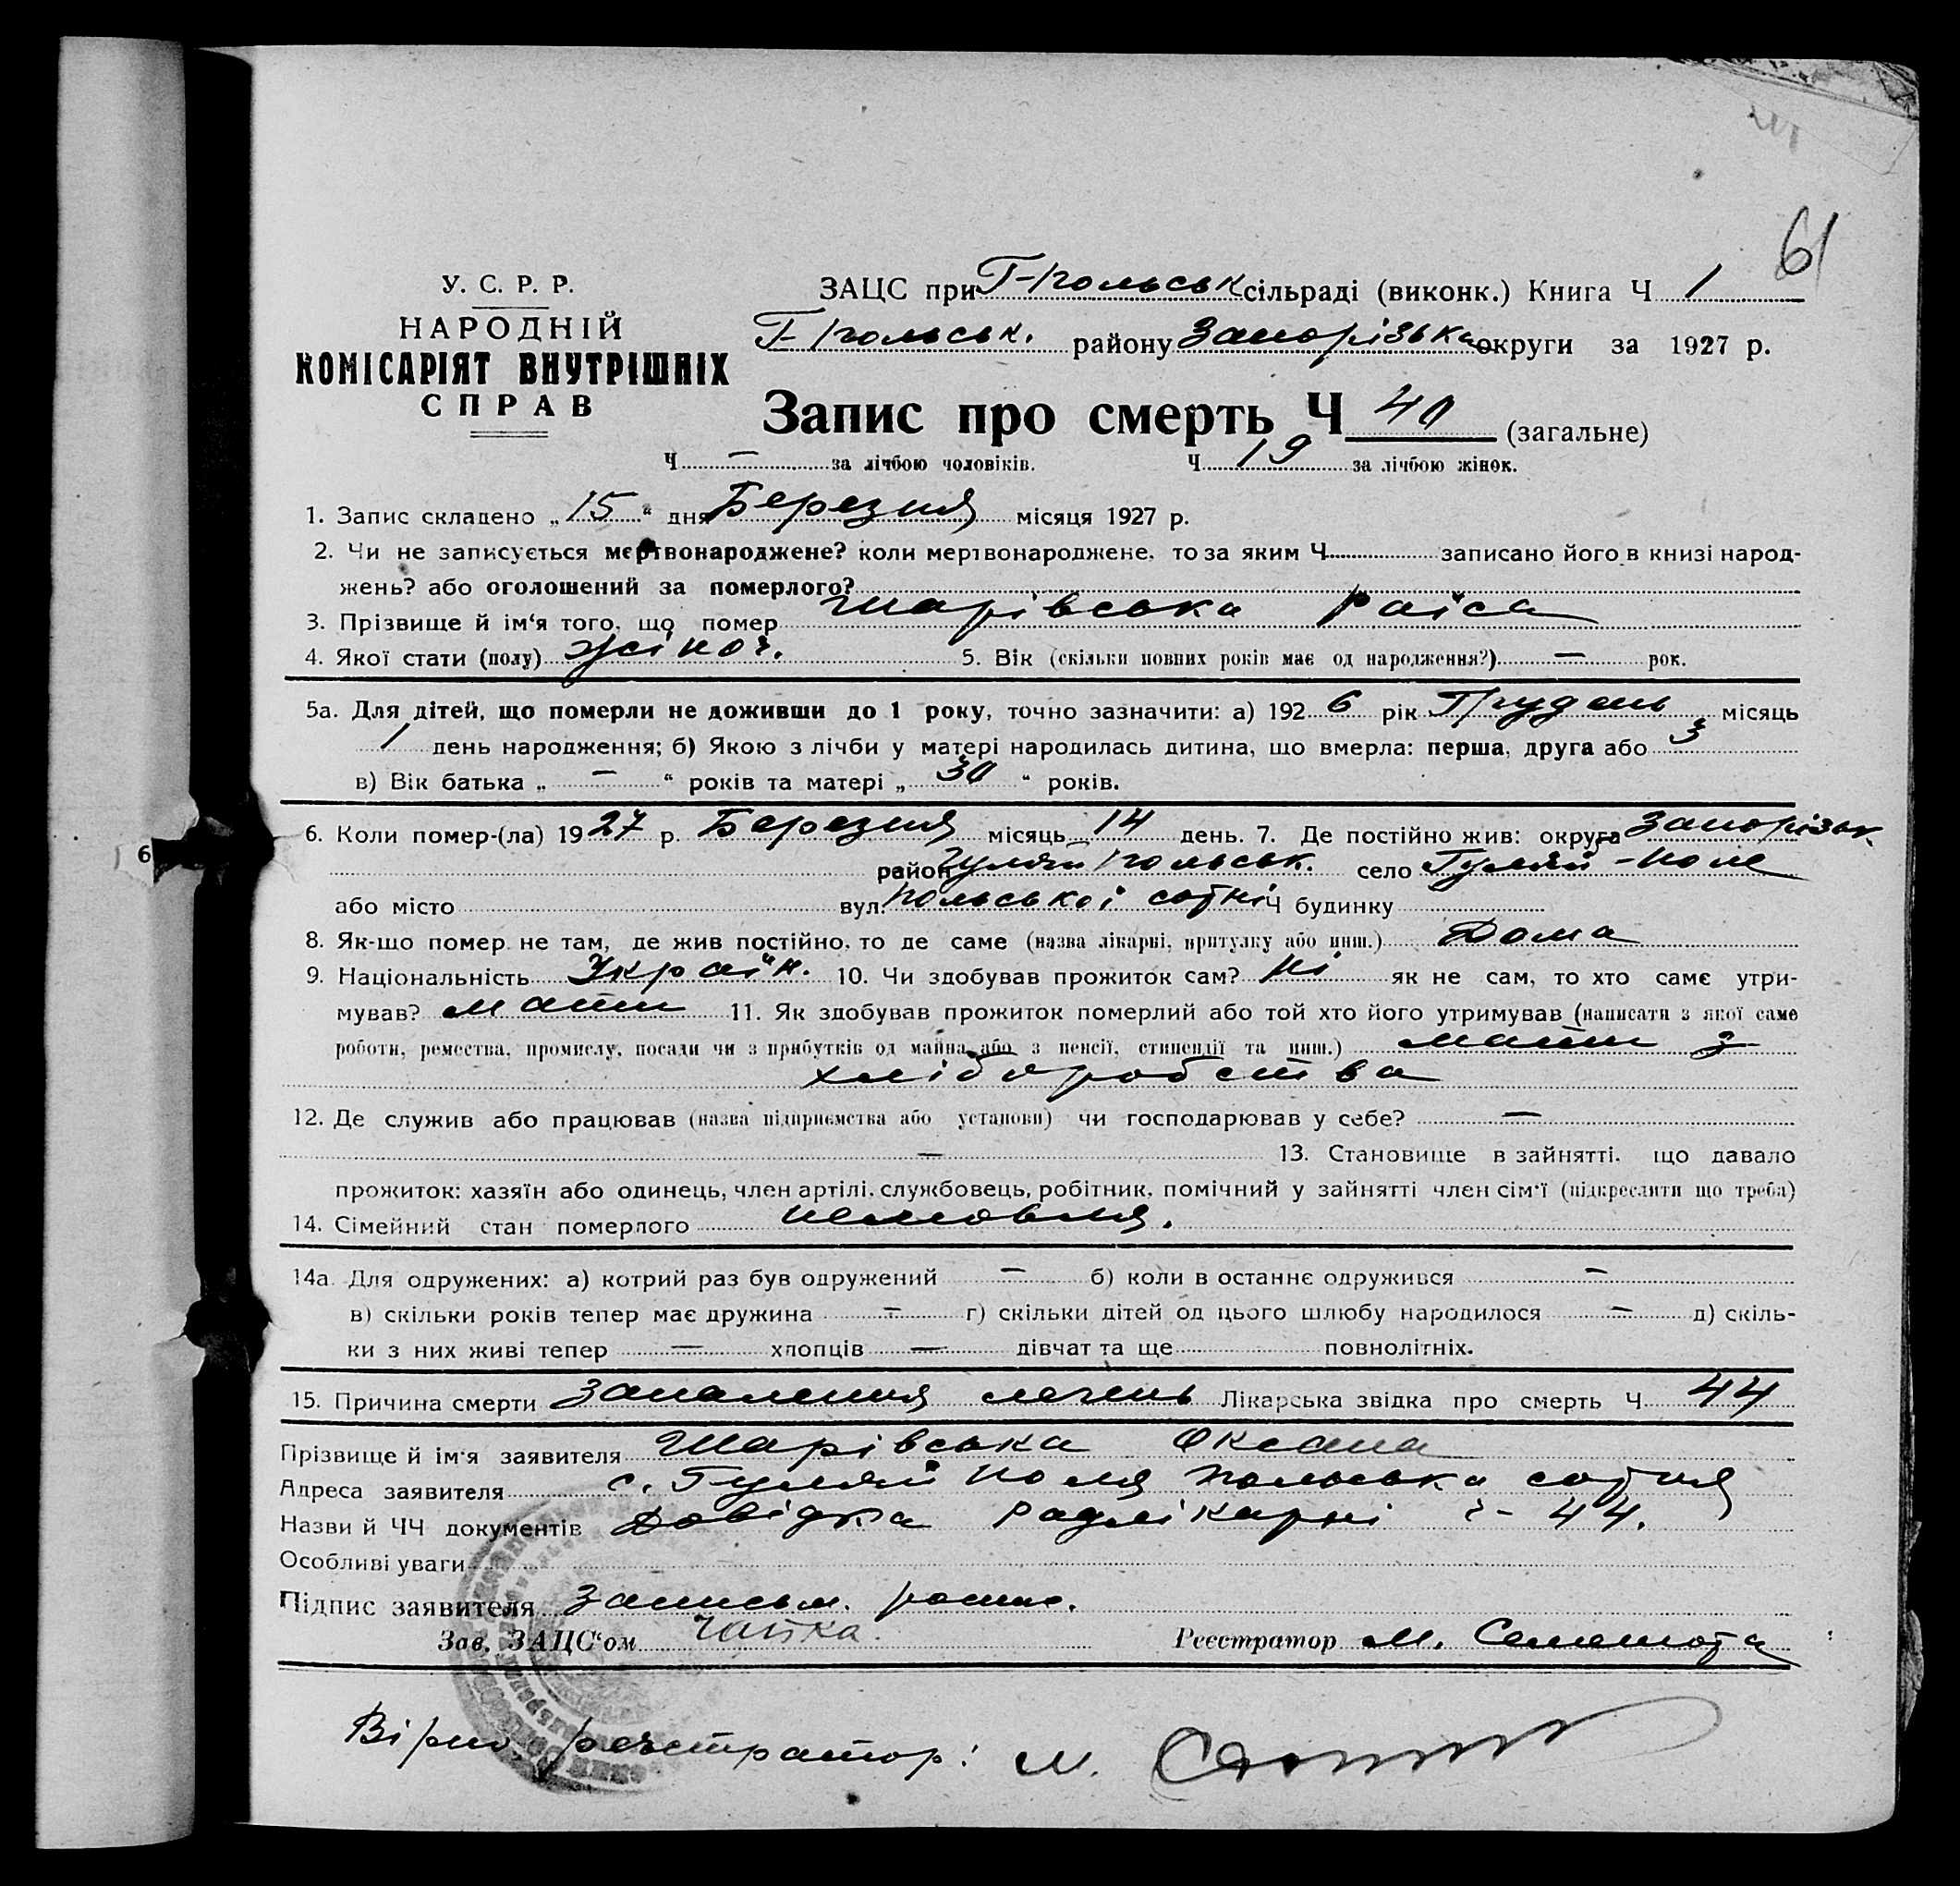 61
У. С. Р. Р.
НАРОДНІЙ
КОМІСАРІЯТ ВНУТРІШНІХ
СПРАВ
ЗАЦС при Г-Польськ сільраді (виконк.) Книга Ч 1
Г-Польськ. району Запорізька округи за 1927 р.
Запис про смерть Ч 40 (загальне)
Ч — за лічбою чоловіків. Ч 19 за лічбою жінок.
1. Запис складено „15“ дня Березня місяця 1927 р.
2. Чи не записується мертвонароджене? коли мертвонароджене, то за яким Ч записано його в книзі народ-
жень? або оголошений за померлого?
3. Прізвище й ім‘я того, що помер Шарівська Раїса
4. Якої стати (полу) жіноч. 5. Вік (скільки повних років має од народження?) — рок.
5а. Для дітей, що померли не доживши до 1 року, точно зазначити: а) 1926 рік Грудень місяць
1 день народження; б) Якою з лічби у матері народилась дитина, що вмерла: перша, друга або 3
в) Вік батька „ — “ років та матері „ 30 “ років.
6. Коли помер-(ла) 1927 р. Березня місяць 14 день. 7. Де постійно жив: округа Запорізьк.
район Гуляй Польськ. село Гуляй-Поле
або місто вул. Польської сотні Ч будинку
8. Як-що помер не там, де жив постійно, то де саме (назва лікарні, притулку або инш.) Дома
9. Національність Україн. 10. Чи здобував прожиток сам? Ні як не сам, то хто саме утри-
мував? мати 11. Як здобував прожиток померлий або той хто його утримував (написати з якої саме
роботи, ремества, промислу, посади чи з прибутків од майна або з пенсії, стипендії та инш.) мати з
хліборобства
12. Де служив або працював (назва підприємства або установи) чи господарював у себе? —
— 13. Становище в зайнятті, що давало
прожиток: хазяїн або одинець, член артілі, службовець, робітник, помічний у зайнятті член сім‘ї (підкреслити що треба)
14. Сімейний стан померлого немовля.
14а. Для одружених: а) котрий раз був одружений — б) коли в останнє одружився —
в) скільки років тепер має дружина — г) скільки дітей од цього шлюбу народилося — д) скіль-
ки з них живі тепер — хлопців — дівчат та ще повнолітніх.
15. Причина смерти Запалення легень Лікарська звідка про смерть Ч 44
Прізвище й ім‘я заявителя Шарівська Оксана
Адреса заявителя с. Гуляй Поля Польська сотня
Назви й ЧЧ документів Довідка Радлікарні ч- 44.
Особливі уваги
Підпис заявителя
Зав. ЗАЦС“ом Чайка. Реєстратор М.
Вірно: реєстратор: М.
6